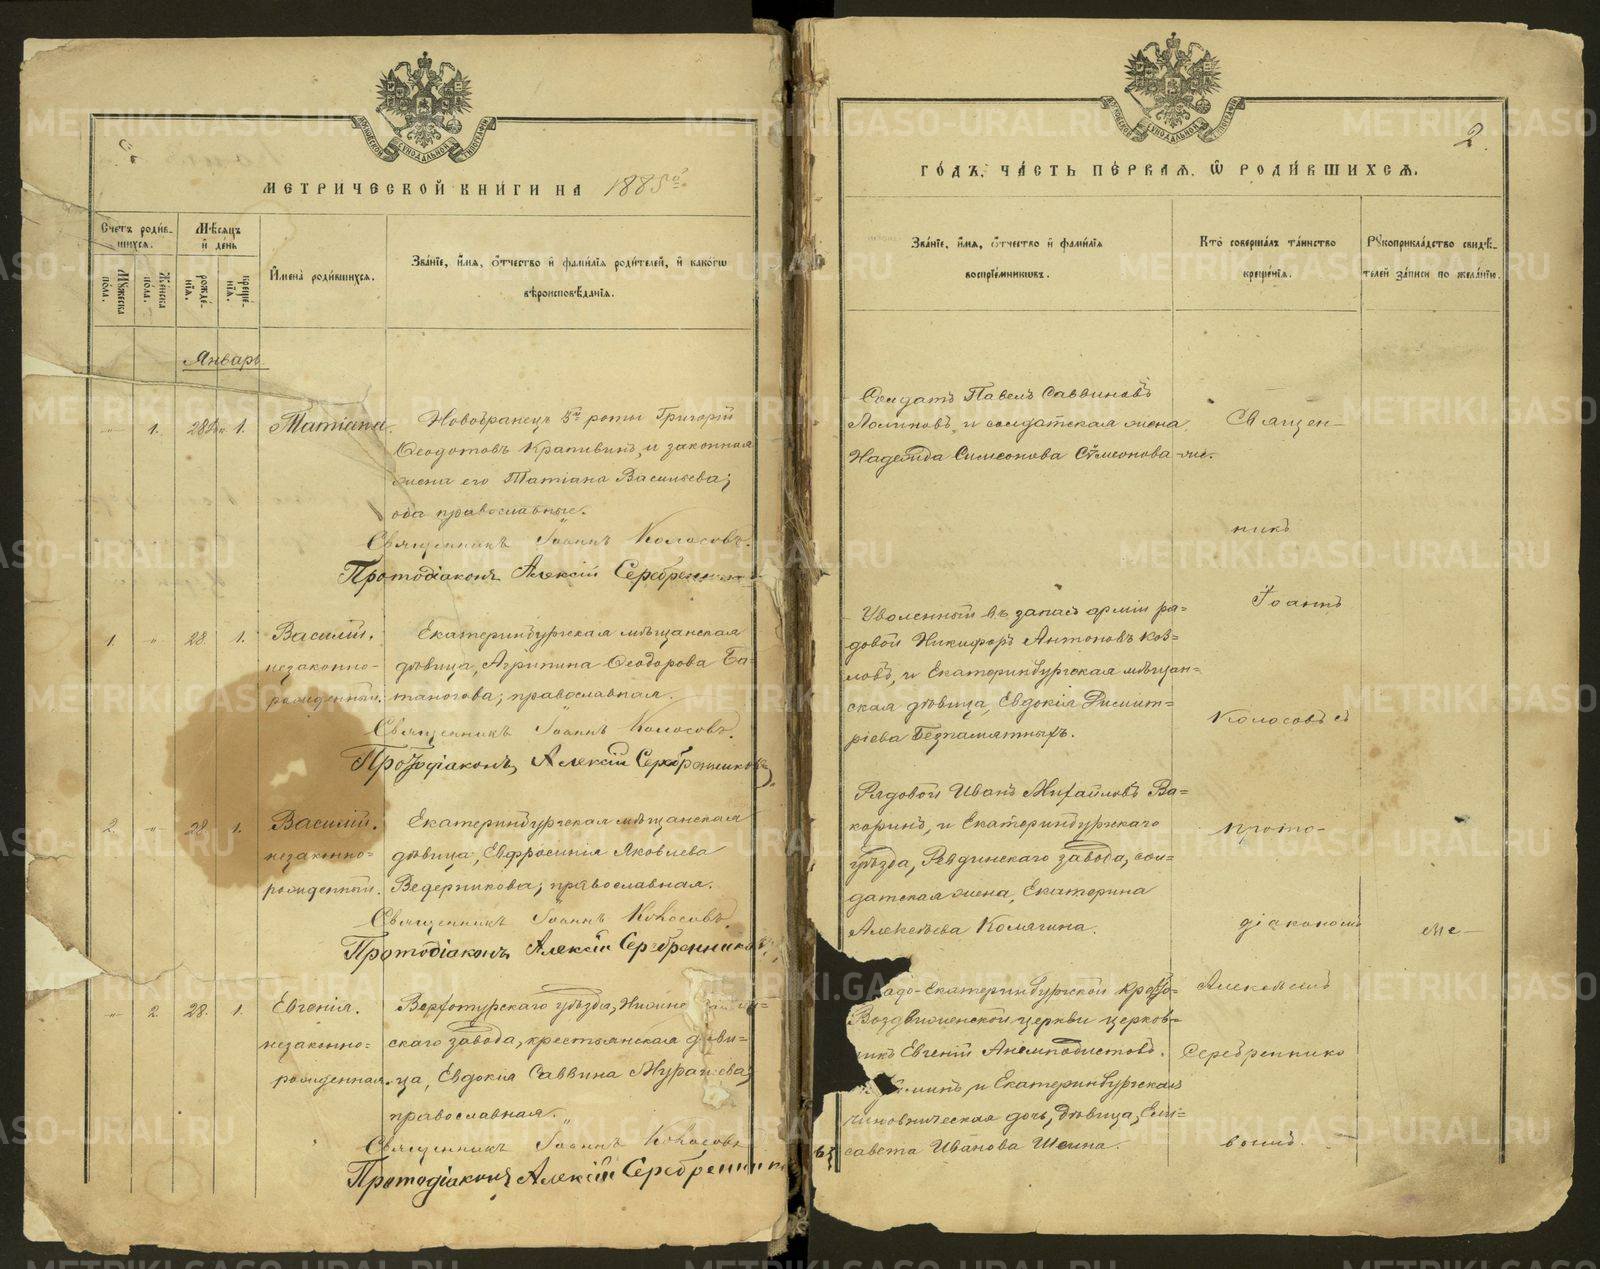 МЕТРИЧЕСКОЙ КНИГИ НА 1885 й
Счетъ родив-
шихся.
Мѣсяцъ
и день
Мужеска
пола.
Женска
пола.
рожде-
нія.
креще-
нія.
Имена родившихся.
Званіе, имя, отчество и фамилія родителей, и какогѡ
вѣроисповѣданія.
Январь
" 1. 28 1. Татіана.
Новобранецъ 5й роты Григорій
Ѳеодотовъ Крапивинъ, и законная
жена его Татіана Васильева;
оба православные.
Священникъ Іоаннъ Колосовъ.
Протодіаконъ Алексій Серебренниковъ
1. " 28 1. Василій.
незаконно-
рожденный.
Екатеринбургская мѣщанская
дѣвица, Агрипина Ѳеодорова Ба-
таногова; православная.
Священникъ Іоаннъ Колосовъ.
Протодіаконъ Алексій Серебренниковъ
2. " 28 1. Василій.
незаконно-
рожденный.
Екатеринбургская мѣщанская
дѣвица, Евфросинія Яковлева
Ведерникова; православная.
Священникъ Іоаннъ Колосовъ
Протодіаконъ Алексій Серебренниковъ
" 2. 28. 1. Евгенія.
незаконно-
рожденная.
Верхотурскаго уѣзда, Нижне
скаго завода, крестьянская дѣви-
ца, Евдокія Саввина
православная.
Священникъ Іоаннъ Колосовъ
Протодіаконъ Алексій Серебренников
2.
ГОДЪ, ЧАСТЬ ПЕРВАЯ, Ѿ РОДИВШИХСЯ.
Званіе, имя, отчество и фамилія
воспріемниковъ.
Кто совершалъ таинство
крещенія.
Рукоприкладство свидѣ-
телей записи по желанію.
Солдатъ Павелъ Саввиновъ
Логиновъ, и солдатская жена
Надежда Симеонова
Уволенный въ запасъ арміи ря-
довой Никифоръ Антоновъ Коз-
ловъ, и Екатеринбургская мѣщан-
ская дѣвица, Евдокія Димит-
ріева Безпамятныхъ.
Рядовой Иванъ Михайловъ Ва-
коринъ, и Екатеринбургскаго
уѣзда, Ревдинскаго завода, сол-
датская жена, Екатерина
Алексѣева Комягина.
Градо-Екатеринбургской Кресто-
Воздвиженской церкви церков-
никъ Евгеній Анемподистовъ
и Екатеринбургская
чиновническая дочь, дѣвица, Ели-
савета Иванова Шеина.
Священ-
никъ
Іоаннъ
Колосовъ съ
прото-
діакономъ
Алексѣемъ
Серебреннико
вымъ.
METRIKI.GASO-URAL.RU